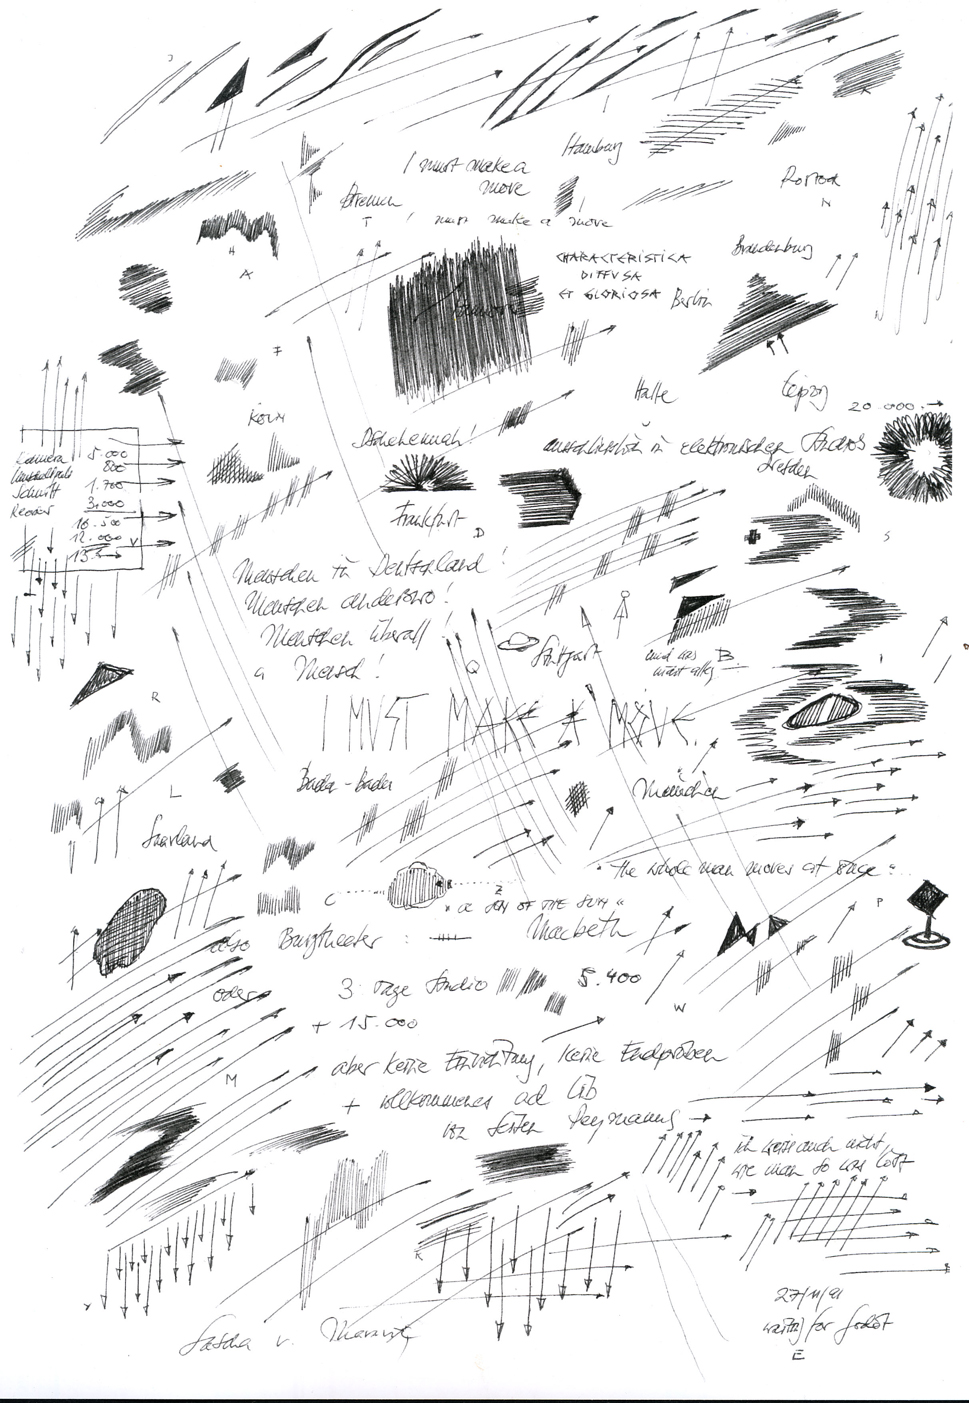 Hamburg
I must make a
move
Bremen
Rostock
I must make a move
CHARACTERISTICA
DIFFUSA
ET GLORIOSA
Brandenburg
Berlin
Hannover
Halle
Leipzig
20.000.
KÖLN
ausschliesslich in elektronischen Studios
Dresden
Kamera 5.000
800
Schnitt 1.700
3.000
16.500
12.000
Frankfurt
Menschen in Deutschland!
Menschen anderswo!
Menschen überall!
a Mensch!
Stuttgart
I MUST MAKE A MOVE.
Baden-Baden
München
Saarland
"the whole man moves at once"
"a SON OF THE SUN"
also Burgtheater: Macbeth
oder
3 Tage Studio 5.400
+ 15.000
aber keine Einrichtung, keine Endproben
+ vollkommenes ad lib
von Seiten Peymanns
ich weiss auch nicht,
wie man so was löst
27/11/91
waiting for Godot
Sascha v.